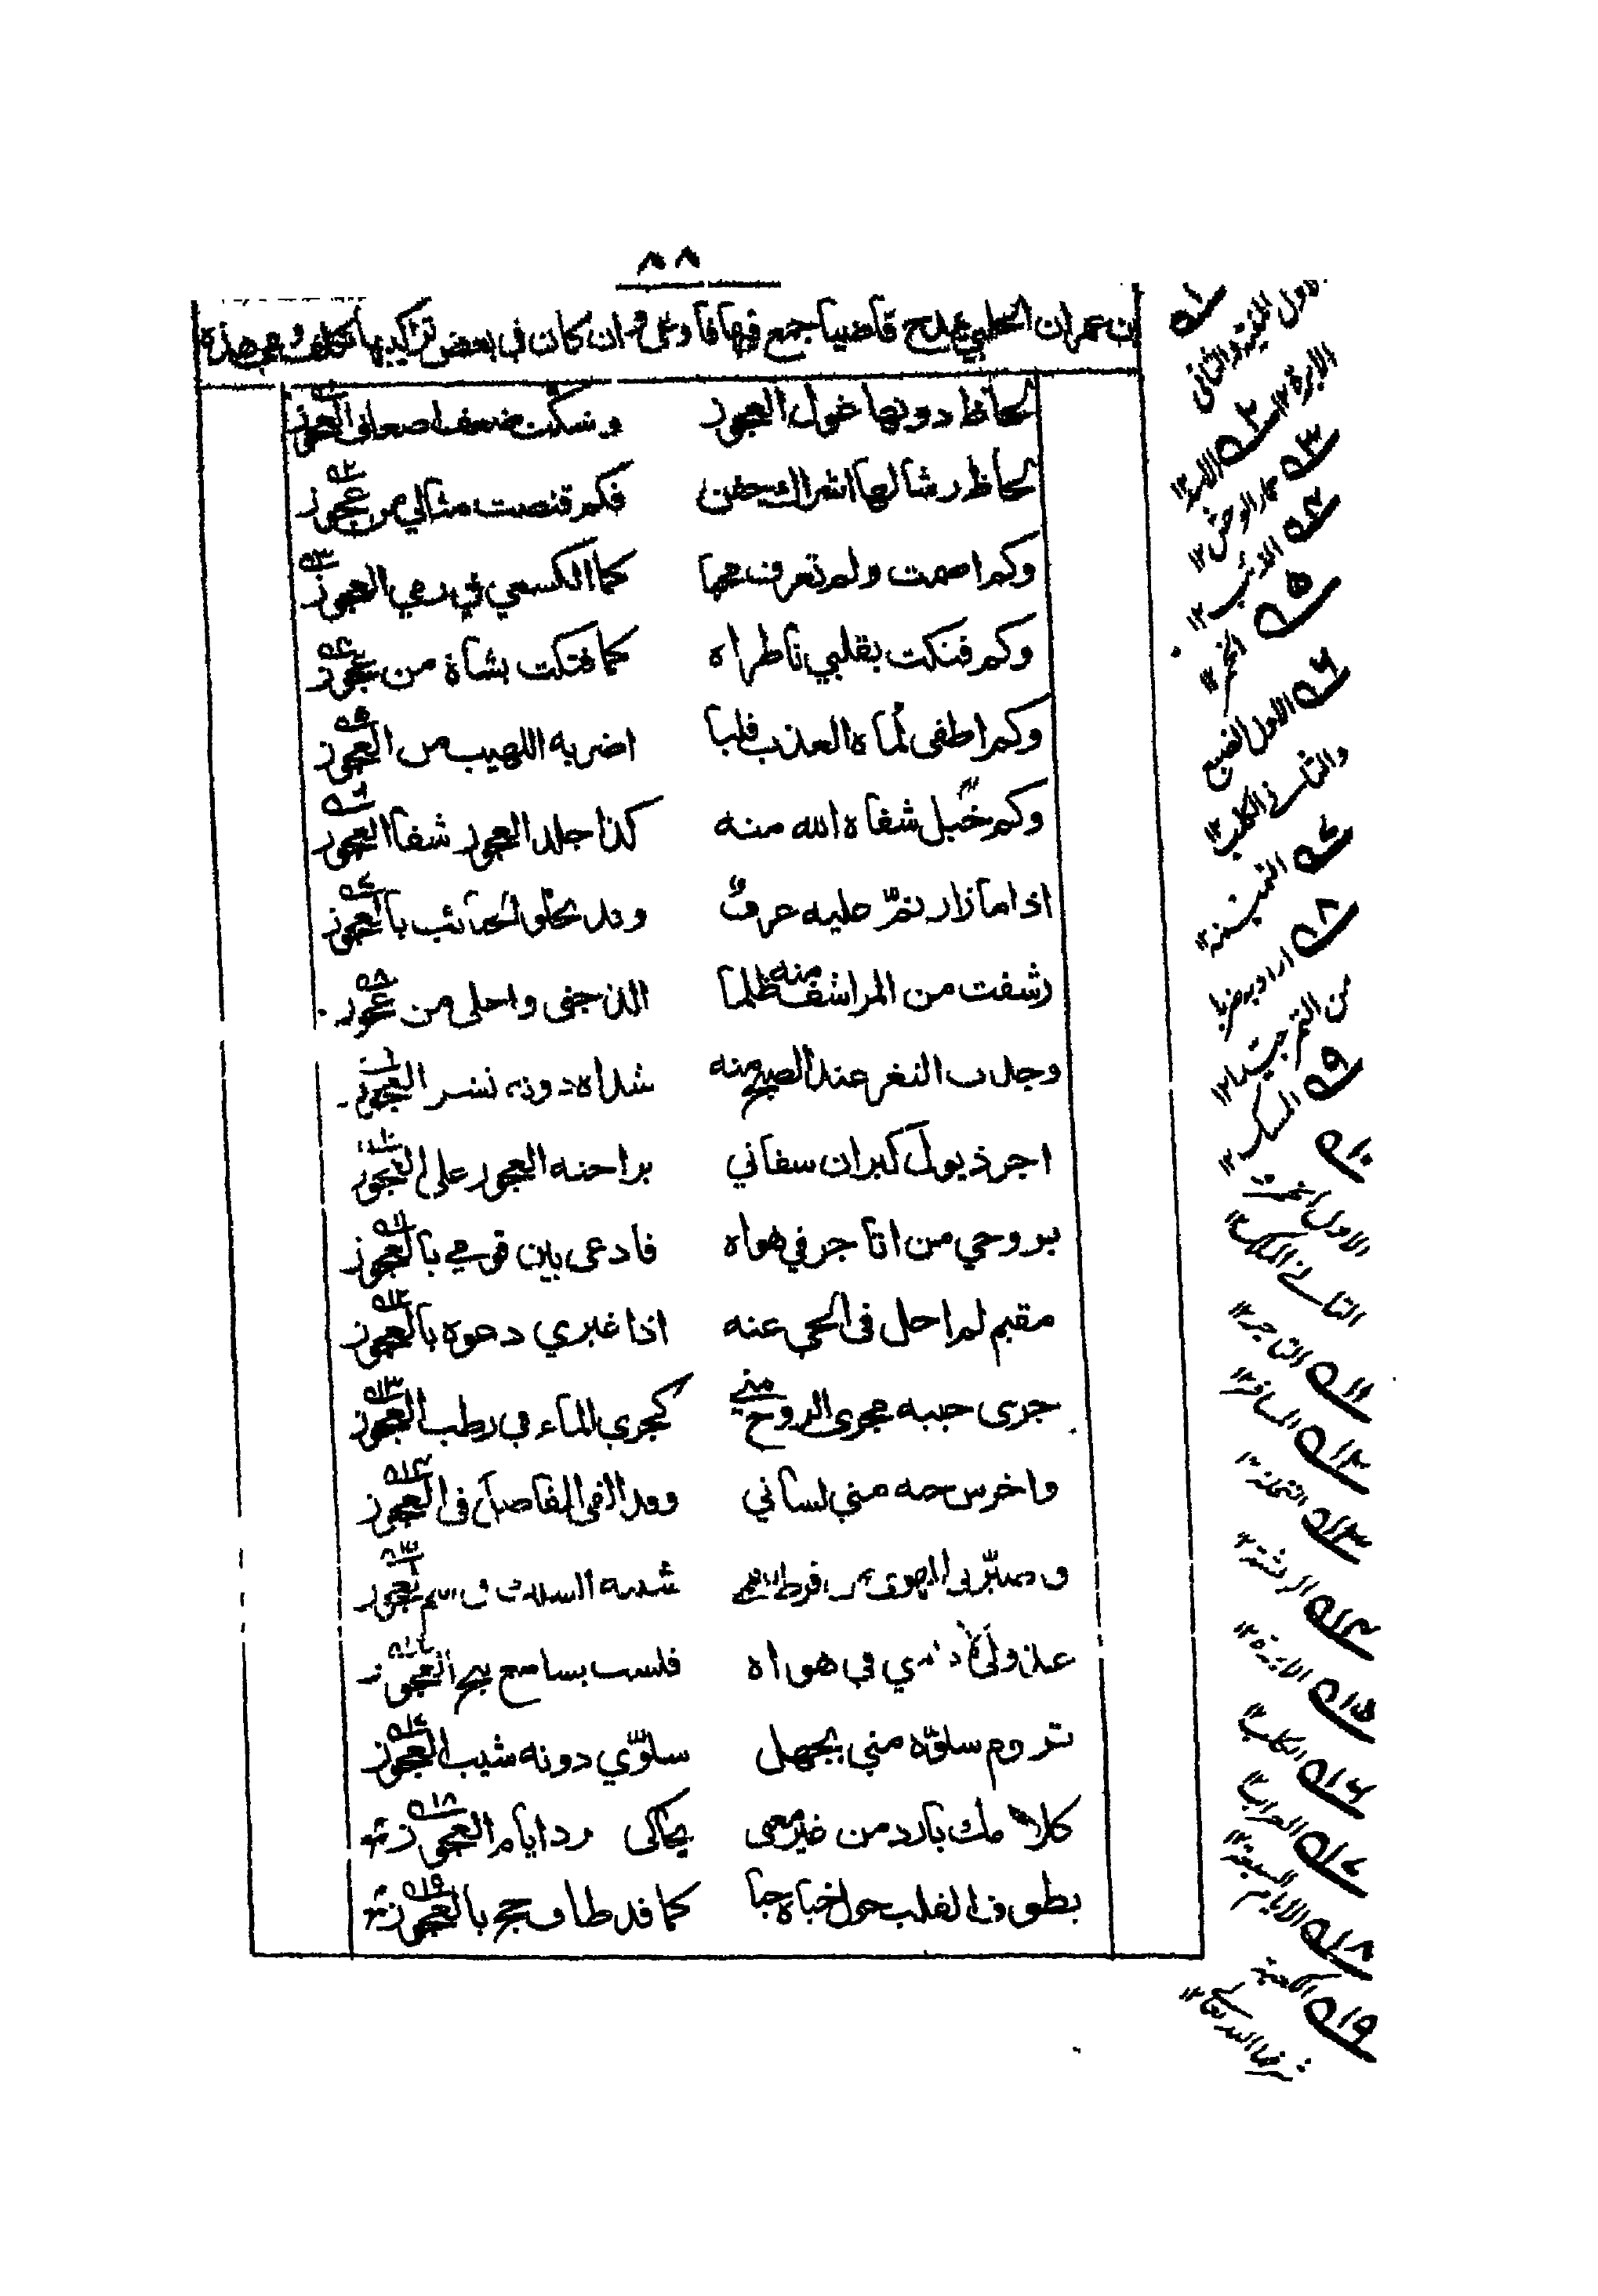 ٨٨
بن عمران الحلبي يمدح قاضيا جمع فيها فاوعى وان كان في بعض تراكيبها تكلف وهي هذه
لحاظ دونها غول العجوز وشكت ضعف اضعاف العجوز
لحاظ رشا لها اشراك جفن فكم قنصت مثالي من عجوز
وكم اصمت ولم تعرف محبا كما الكسعي في رمي العجوز
وكم فتكت بقلبي ناظراه كما فتكت بشاة من عجوز
وكم اطفى لماه العذب قلبا اضر به اللهيب من العجوز
وكم خبل شفاه الله منه كذا جلد العجوز شفا العجوز
اذا ما زار نم عليه عرف وقد تحلو الحبائب بالعجوز
رشفت من المراشف منه ظلما الذ جنى واحلى من عجوز
وجدت الثغر عند الصبح منه شذاه دونه نشر العجوز
اجر ذيول كبران سقاني براحته العجوز على العجوز
بروحي من اتاجر في هواه فادعى بين قومي بالعجوز
مقيم لم احل في الحي عنه اذا غيري دعوه بالعجوز
جرى حبيه مجرى الروح مني كجري الماء في رطب العجوز
واخرس حبه مني لساني وقد القى المفاصل في العجوز
وصيرني الهوى من فرط سقمي شبيه السلك في سم العجوز
عذولي لا تلمني في هواه فلست بسامع نبح العجوز
تروم سلوه مني بجهل سلوي دونه شيب العجوز
كلامك بارد من غير معنى يحاكي برد ايام العجوز
يطوف القلب حول خباه حبا كما قد طاف حج بالعجوز
١ الاول المنية والثاني الابرة ١٢
٢ الاسد ١٢
٣ حمار الوحش ١٢
٤ الذئب ١٢
٥ الخمر ١٢
٦ الاول الضبع والثاني الكلب ١٢
٧ النميمة ١٢
٨ اراد به ضربا من التمر جيدا ١٢
٩ المسك ١٢
١٠ الاول الخمر الثاني الملك ١٢
١١ التاجر ١٢
١٢ المسافر ١٢
١٣ النخلة ١٢
١٤ الرعشة ١٢
١٥ الابرة ١٢
١٦ الكلب ١٢
١٧ الغراب ١٢
١٨ الايام السبعة ١٢
١٩ الكعبة شرفها الله تعالى ١٢